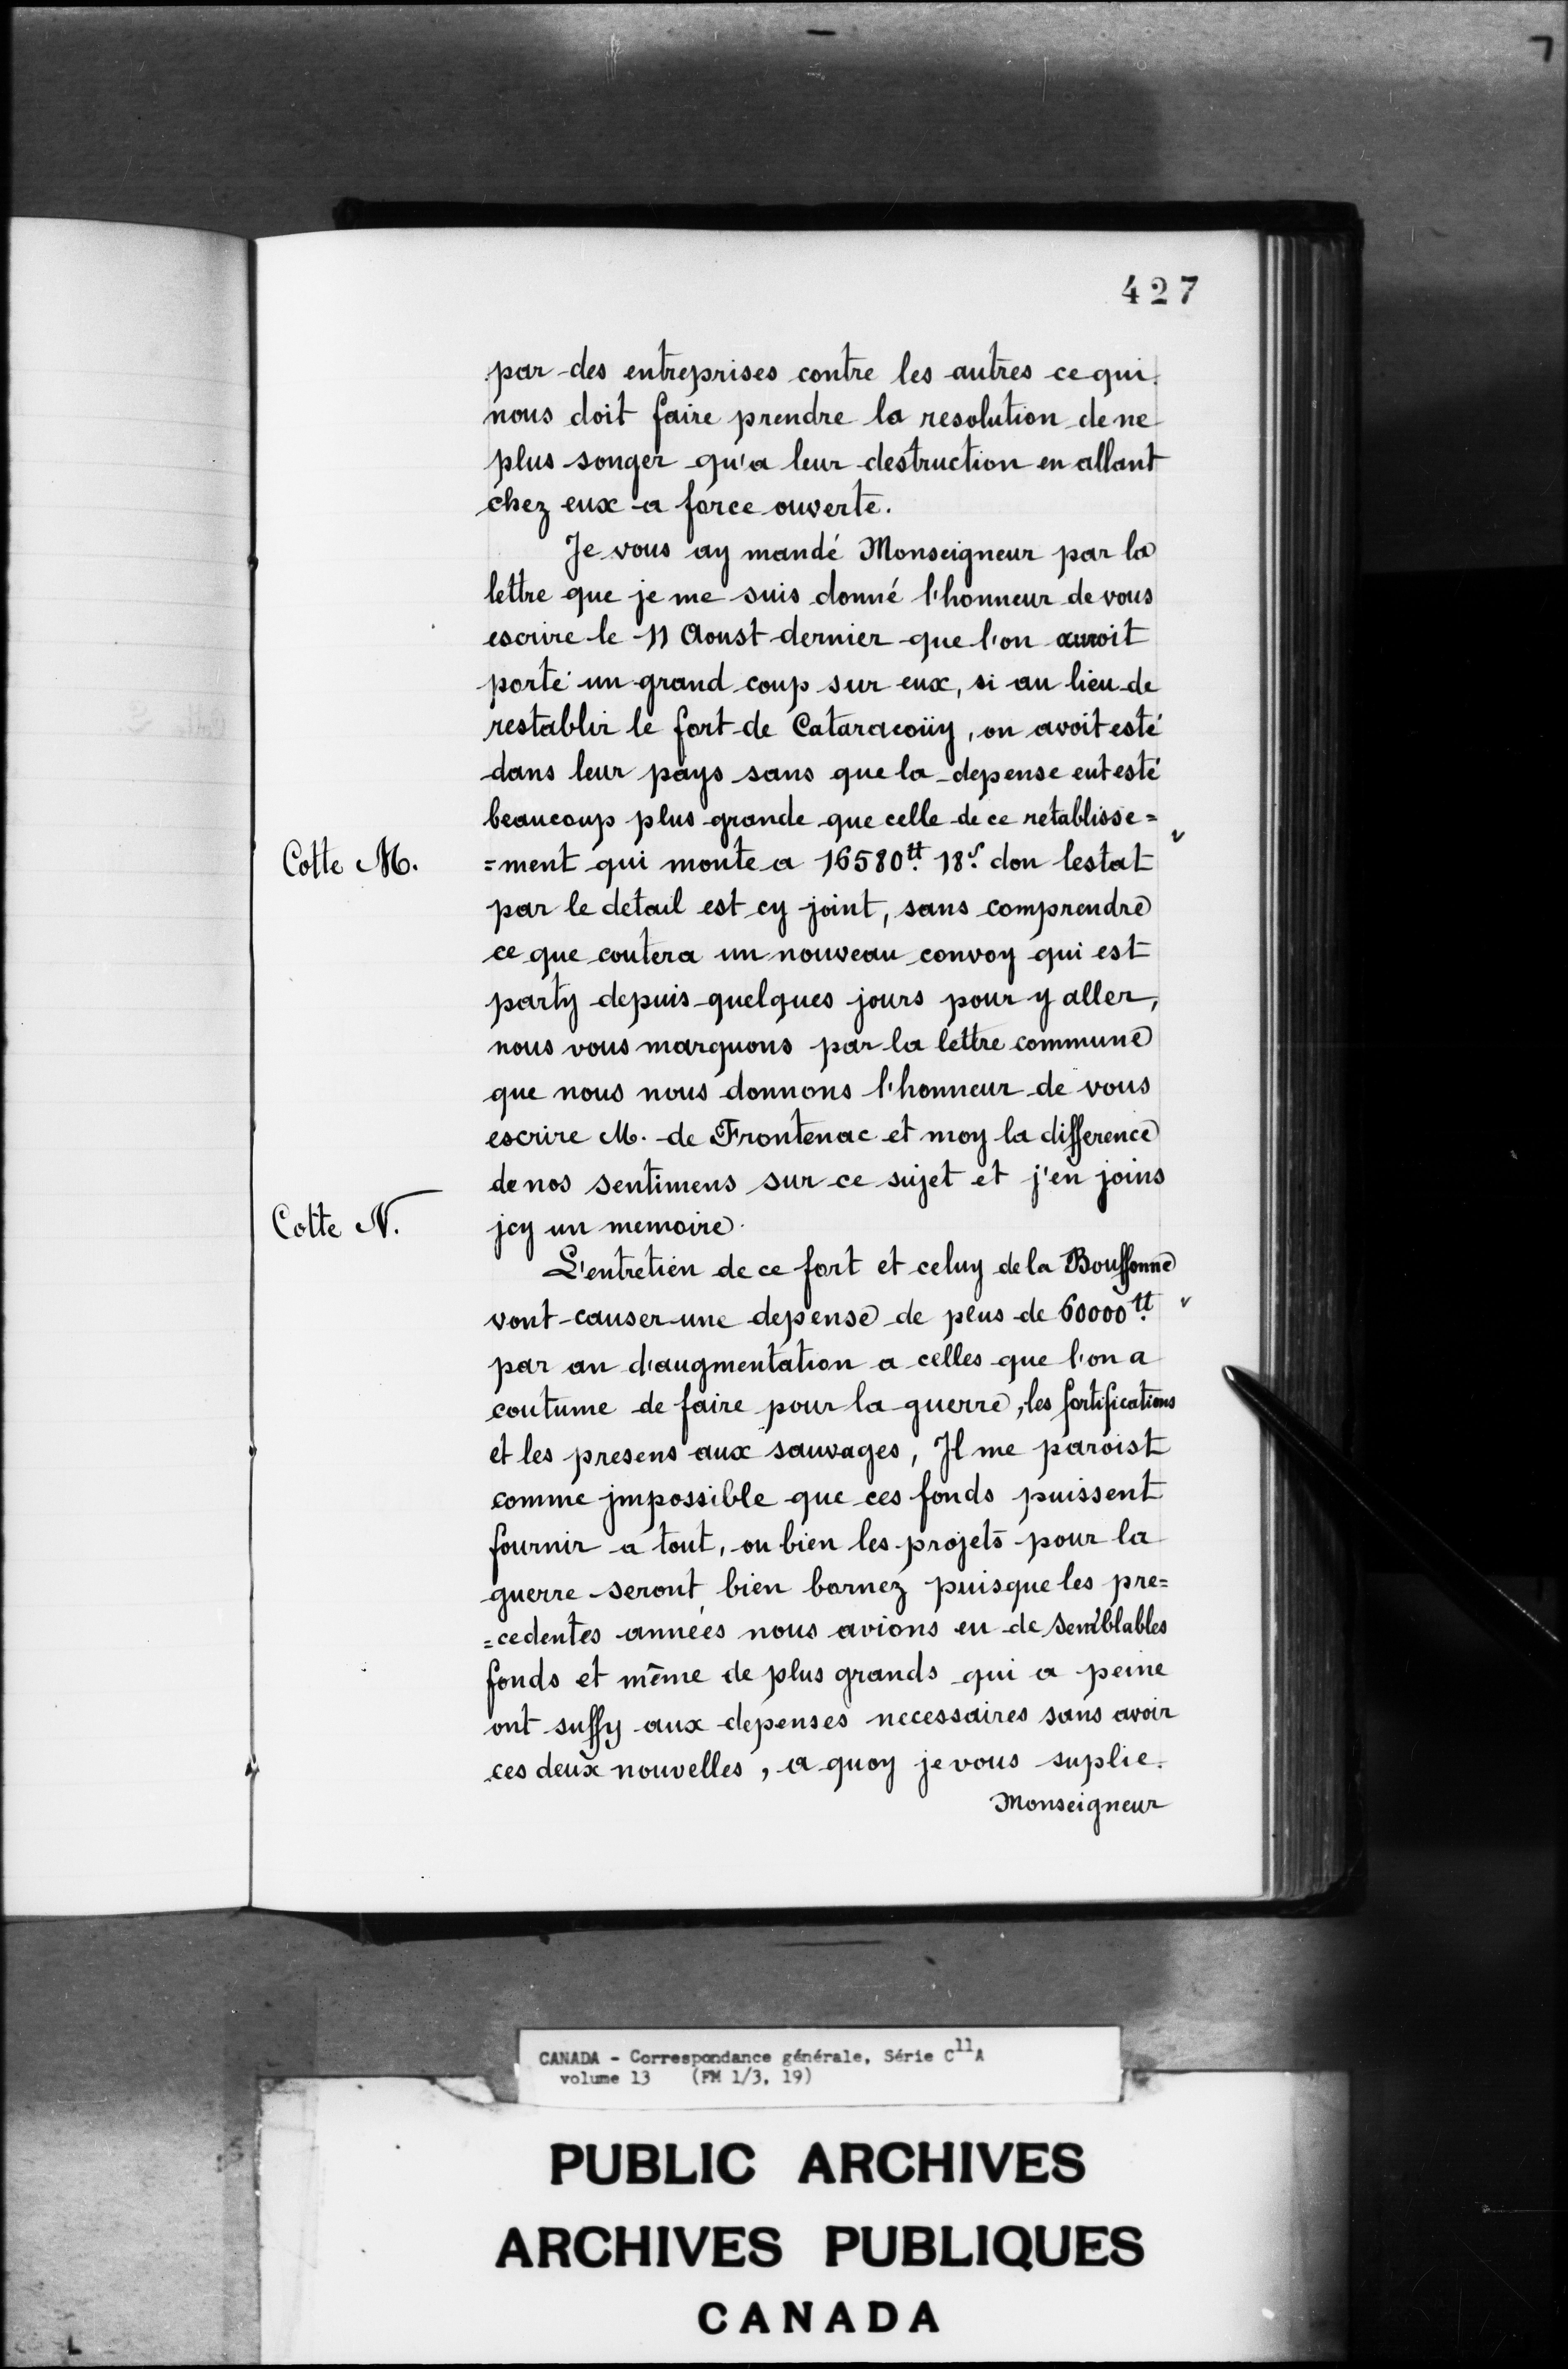 7
427
par des entreprises contre les autres ce qui
nous doit faire prendre la resolution de ne
plus songer qu'a leur destruction en allant
chez eux a force ouverte.
Je vous ay mandé Monseigneur par la
lettre que je me suis donné l'honneur de vous
escrire le 11 Aoust dernier que l'on auroit
porté un grand coup sur eux, si au lieu de
restablir le fort de Cataracoüy, on avoit esté
dans leur pays sans que la depense eut esté
beaucoup plus grande que celle de ce retablisse=
Cotte M. =ment qui monte a 16580tt. 18s. don lestat
par le detail est cy joint, sans comprendre
ce que coutera un nouveau convoy qui est
party depuis quelques jours pour y aller,
nous vous marquons par la lettre commune
que nous nous donnons l'honneur de vous
escrire M. de Frontenac et moy la difference
de nos sentimens sur ce sujet et j'en joins
Cotte N. jcy un memoire.
L'entretien de ce fort et celuy de la Bouffonne
vont causer une depense de plus de 60000tt.
par an d'augmentation a celles que l'on a
coutume de faire pour la guerre, les fortifications
et les presens aux sauvages, Il me paroist
comme jmpossible que ces fonds puissent
fournir a tout, ou bien les projets pour la
guerre seront bien bornez puisque les pre=
=cedentes années nous avions eu de semblables
fonds et même de plus grands qui a peine
ont suffy aux depenses necessaires sans avoir
ces deux nouvelles, a quoy je vous suplie.
Monseigneur
CANADA - Correspondance générale, Série C11A
volume 13 (FM 1/3, 19)
PUBLIC ARCHIVES
ARCHIVES PUBLIQUES
CANADA